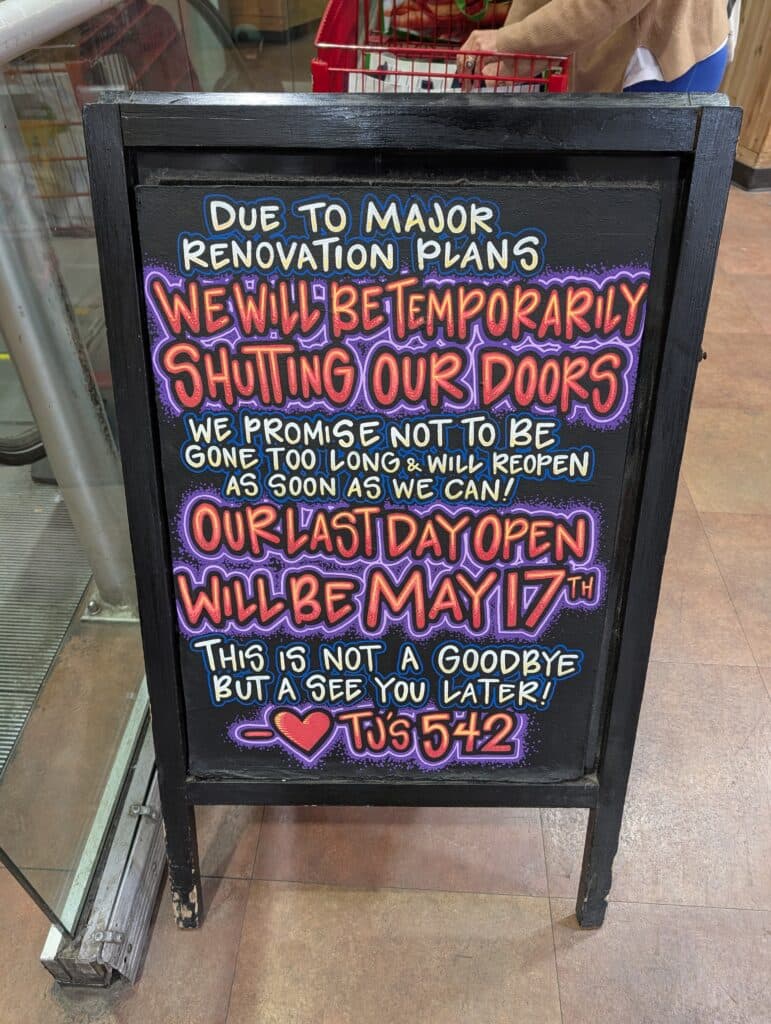 DUE TO MAJOR
RENOVATION PLANS
WE WILL BE TEMPORARILY
SHUTTING OUR DOORS
WE PROMISE NOT TO BE
GONE TOO LONG & WILL REOPEN
AS SOON AS WE CAN!
OUR LAST DAY OPEN
WILL BE MAY 17TH
THIS IS NOT A GOODBYE
BUT A SEE YOU LATER!
- ♥ TJ'S 542